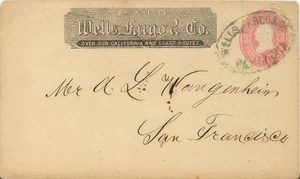 PAID
Wells, Fargo & Co.
OVER OUR CALIFORNIA AND COAST ROUTES
WELLS FARGO &
Mr A L Wangenheim
San Francisco